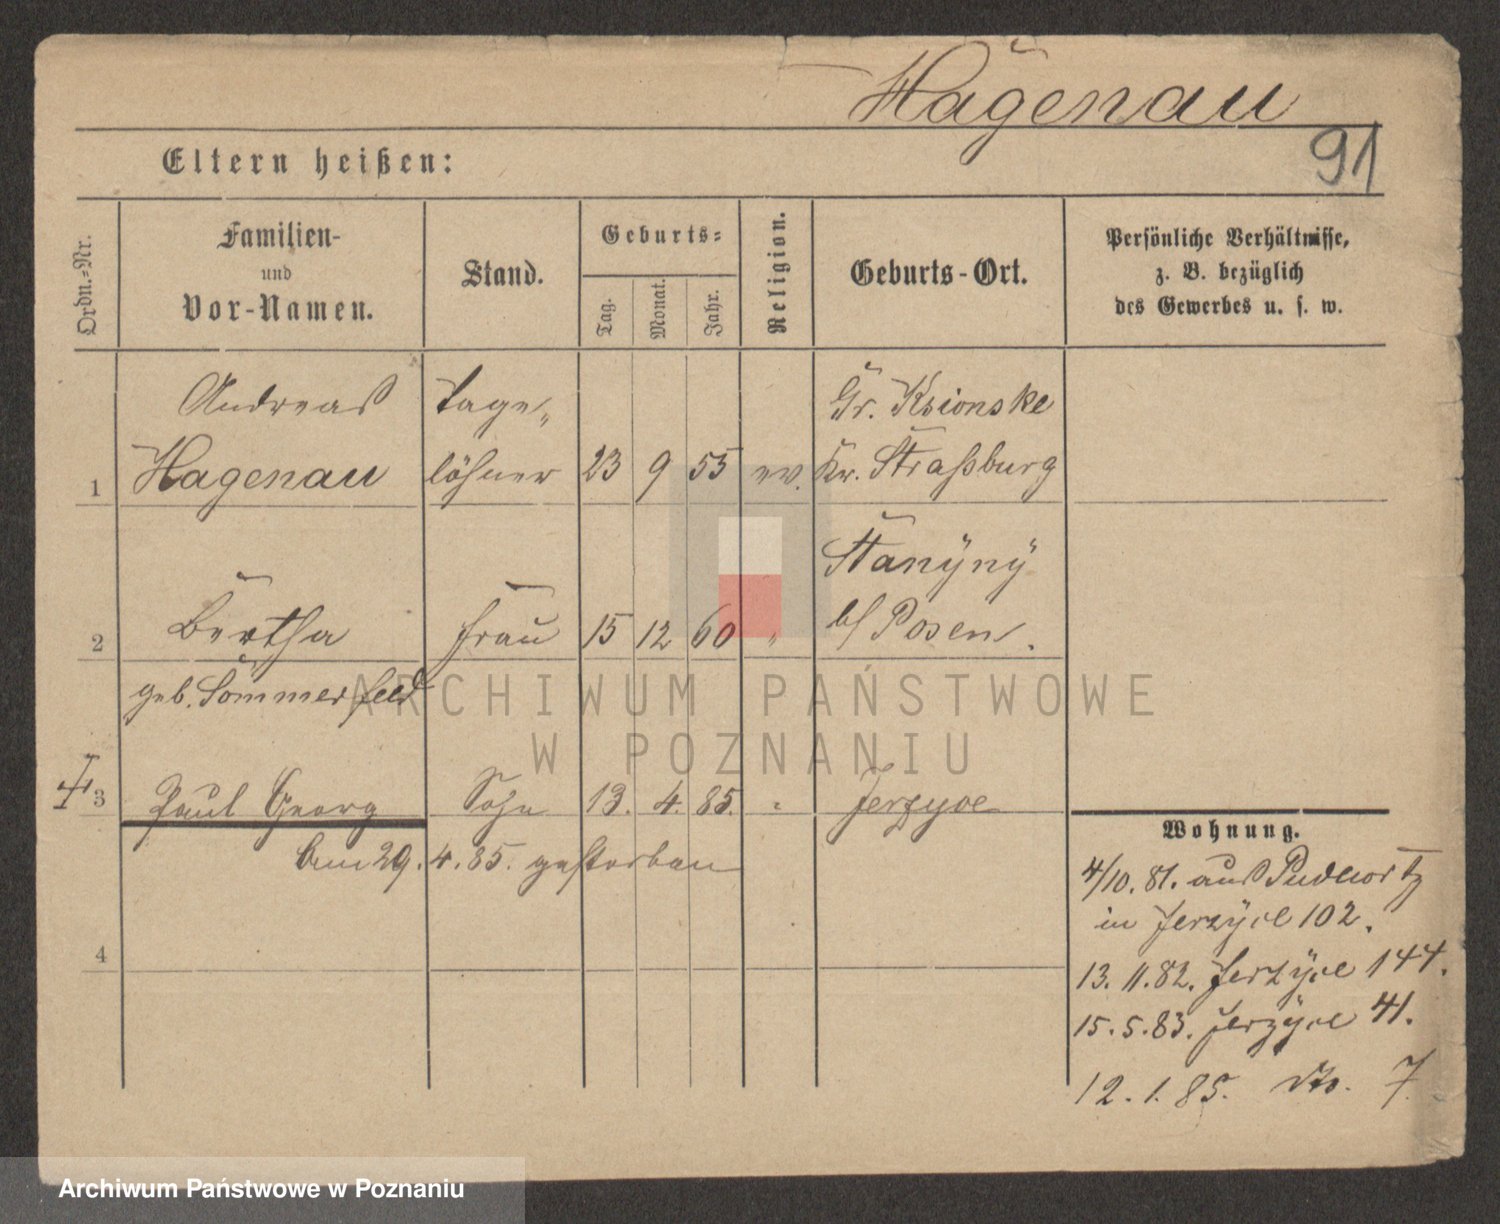 Hagenau
91
Eltern heißen:
Ordn.-Nr.
Familien-
und
Vor-Namen.
Stand.
Geburts-
Tag.
Monat.
Jahr.
Religion.
Geburts-Ort.
Persönliche Verhältnisse,
z. B. bezüglich
des Gewerbes u. s. w.
Andreas Tage- Gr. Ksionske
1 Hagenau löhner 23 9 55 ev. Kr. Straßburg
Stanÿnÿ
2 Bertha Frau 15 12 60 " b/ Posen.
geb. Sommerfeld
3 Paul Georg Sohn 13. 4. 85. " Jerzyce
Am 29. 4. 85. gestorben
4
Wohnung.
4/10. 81. aus Pudewitz
in Jerzÿce 102.
13. 11. 82. Jerzÿce 144.
15. 5. 83. Jerzÿce 41.
12. 1. 85. dto. 7.
ARCHIWUM PAŃSTWOWE
W POZNANIU
Archiwum Państwowe w Poznaniu